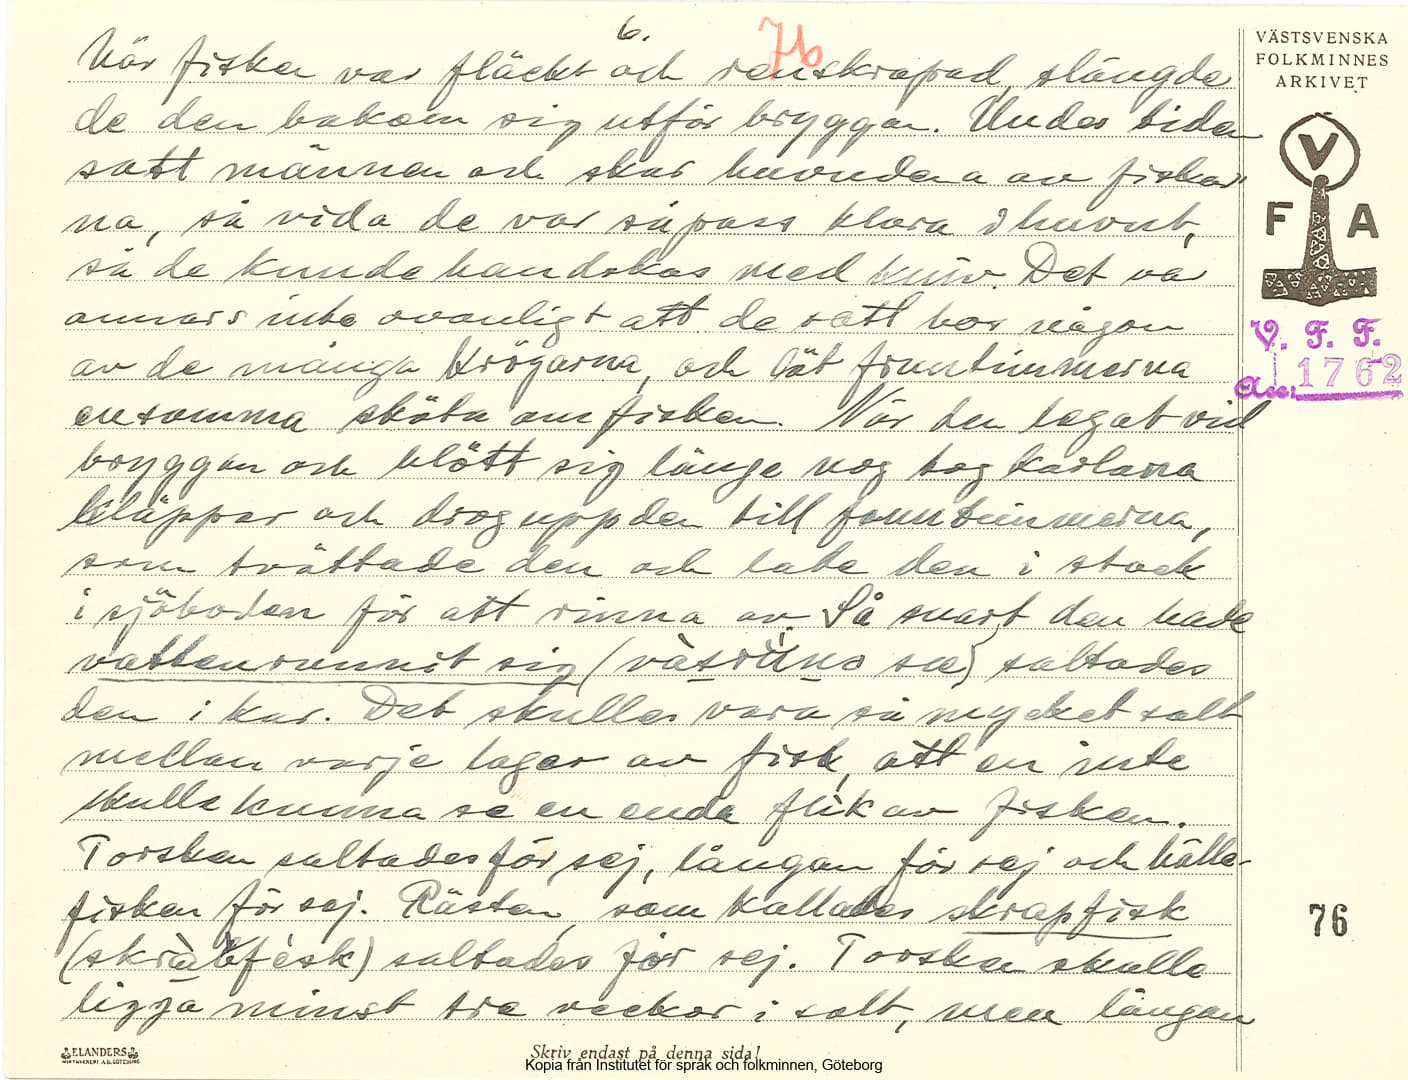 6.
76
När fisken var fläckt och renskrapad, slängde
de den bakom sig utför bryggan. Under tiden
satt männen och skar huvudena av fiskar-
na, så vida de var såpass klara i huvut,
så de kunde handskas med kniv. Det var
annars inte ovanligt att de satt hos någon
av de många krögarna, och lät fruntimmerna
ensamma sköta om fisken. När den legat vid
bryggan och blött sig länge nog tog karlarna
kläppar och drog upp den till fruntimmerna,
som tvättade den och lade den i stack
i sjöboden för att rinna av. Så snart den hade
vattenrunnit sig ( sæ) saltades
den i kar. Det skulle vara så mycket salt
mellan varje lager av fisk, att en inte
skulle kunna se en enda flik av fisken.
Torsken saltades för sej, långan för sej och hälle-
fisken för sej. Rästen, som kallades skrapfisk
(skràbfésk) saltades för sej. Torsken skulle
ligga minst tre veckor i salt, men långan
VÄSTSVENSKA
FOLKMINNES
ARKIVET
V
F A
V. F. F.
Acc: 1762
76
ELANDERS
Skriv endast på denna sida!
Kopia från Institutet för språk och folkminnen, Göteborg